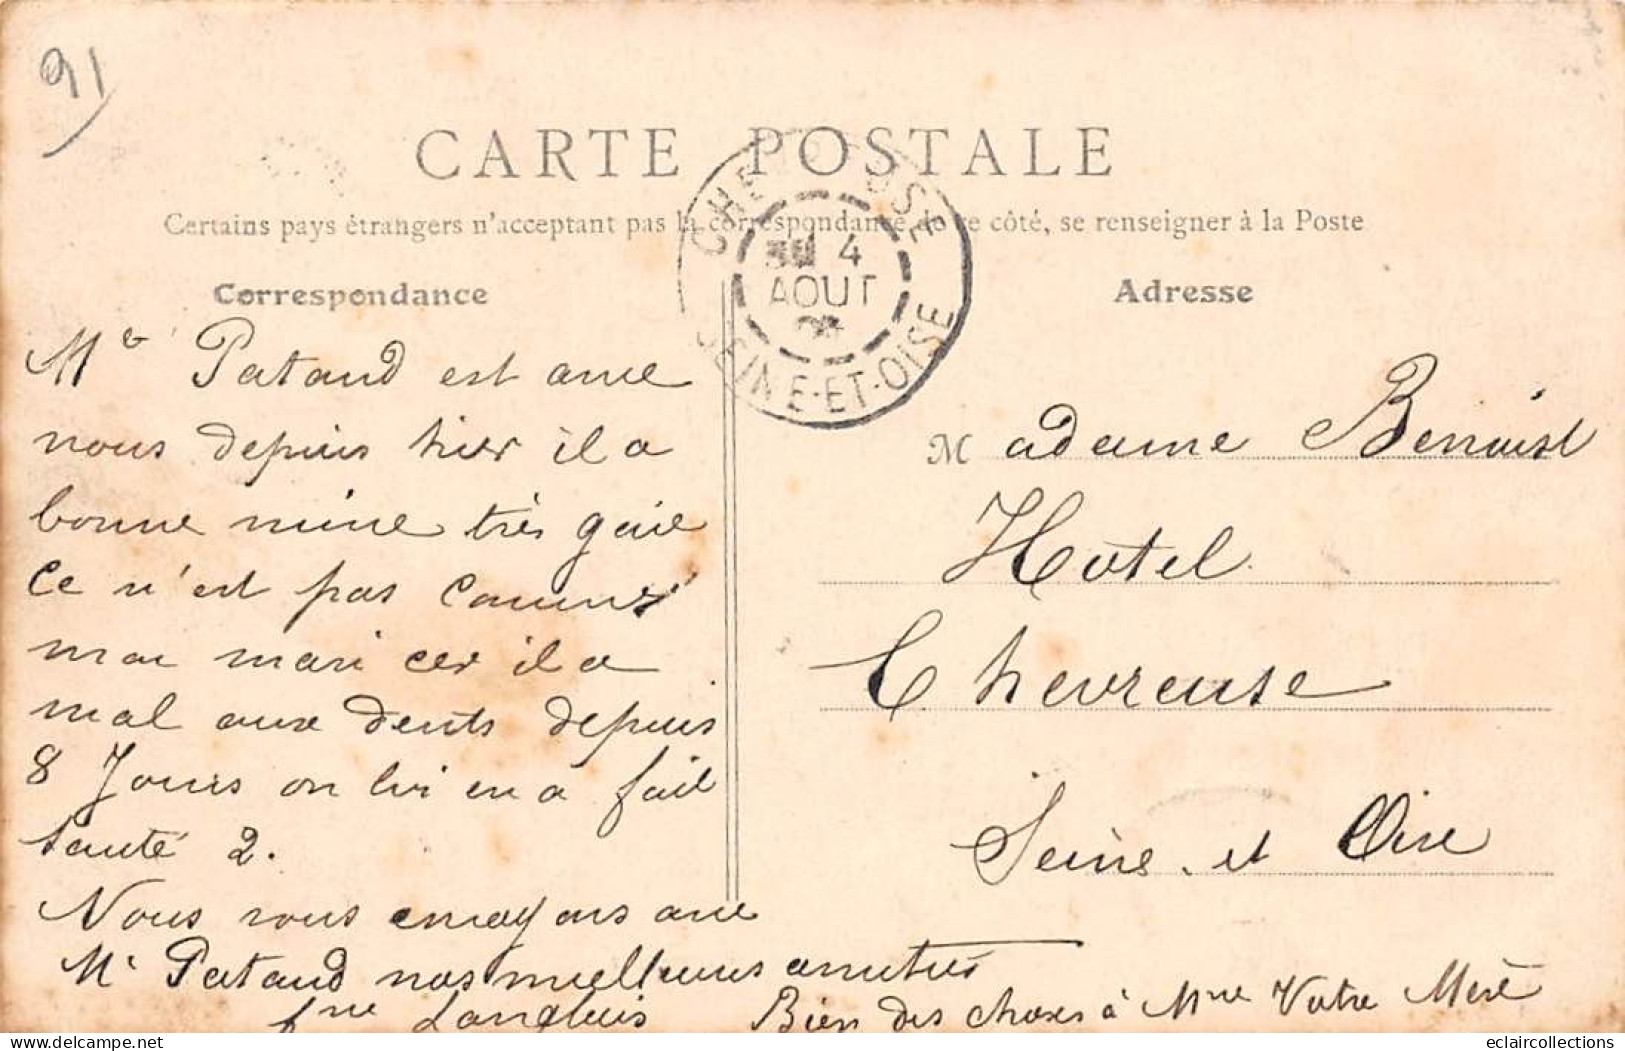 91
CARTE POSTALE
Certains pays étrangers n'acceptant pas la correspondance de ce côté, se renseigner à la Poste
CHE OSE
4
AOUT
SEINE-ET-OISE
Correspondance
Mr Pataud est avec
nous depuis hier il a
bonne mine très gaie
Ce n'est pas comme
moi mari car il a
mal aux dents depuis
8 Jours on lui en a fait
sauté 2.
Nous vous envoyons avec
Mr Pataud nos meilleures amitiés
Langlois
Bien des choses à Mme Votre Mère
Adresse
Madame Benoist
Hôtel
Chevreuse
Seine et Oise
eclaircollections